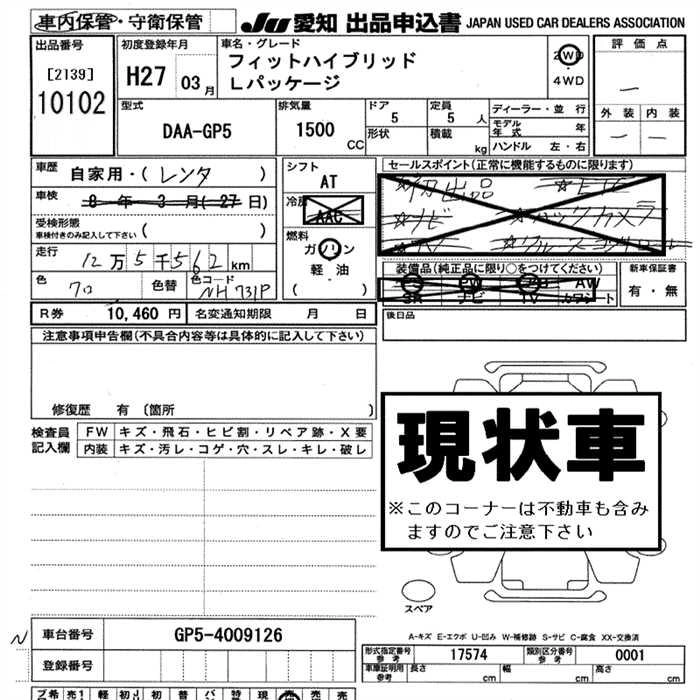 車内保管・守衛保管
JU 愛知 出品申込書 JAPAN USED CAR DEALERS ASSOCIATION
出品番号
[2139]
10102
初度登録年月
H27 03月
車名・グレード
フィットハイブリッド
Lパッケージ
2WD
・
4WD
評価点
―
外装 内装
― ―
型式
DAA-GP5
排気量
1500 CC
ドア
5
形状
定員
5 人
積載
kg
ディーラー・並行
モデル年式 年
ハンドル 左・右
車歴 自家用・(レンタ )
車検 8年3月(27日)
受検形態
車検付きのみ記入して下さい ( )
走行 12万5千562km
色 クロ 色替 色コード NH731P
シフト
AT
冷房
AAC
燃料
ガソリン
軽・油
( )
セールスポイント(正常に機能するものに限ります)
☆初出品 ☆ETC
☆ナビ ☆バックカメラ
装備品(純正品に限り○をつけてください)
SR ナビ TV カワシート
AW
新車保証書
有・無
R券 10,460 円 名変通知期限 月 日
後日品
注意事項申告欄(不具合内容等は具体的に記入して下さい)
修復歴 有 〔箇所 〕
検査員記入欄
FW キズ・飛石・ヒビ割・リペア跡・X要
内装 キズ・汚レ・コゲ・穴・スレ・キレ・破レ
現状車
※このコーナーは不動車も含み
ますのでご注意下さい
スペア
A-キズ E-エクボ U-凹み W-補修跡 S-サビ C-腐食 XX-交換済
N
車台番号 GP5-4009126
登録番号
形式指定番号 参考 17574 類別区分番号 参考 0001
車庫証明用 参考 長さ cm 幅 cm 高さ cm